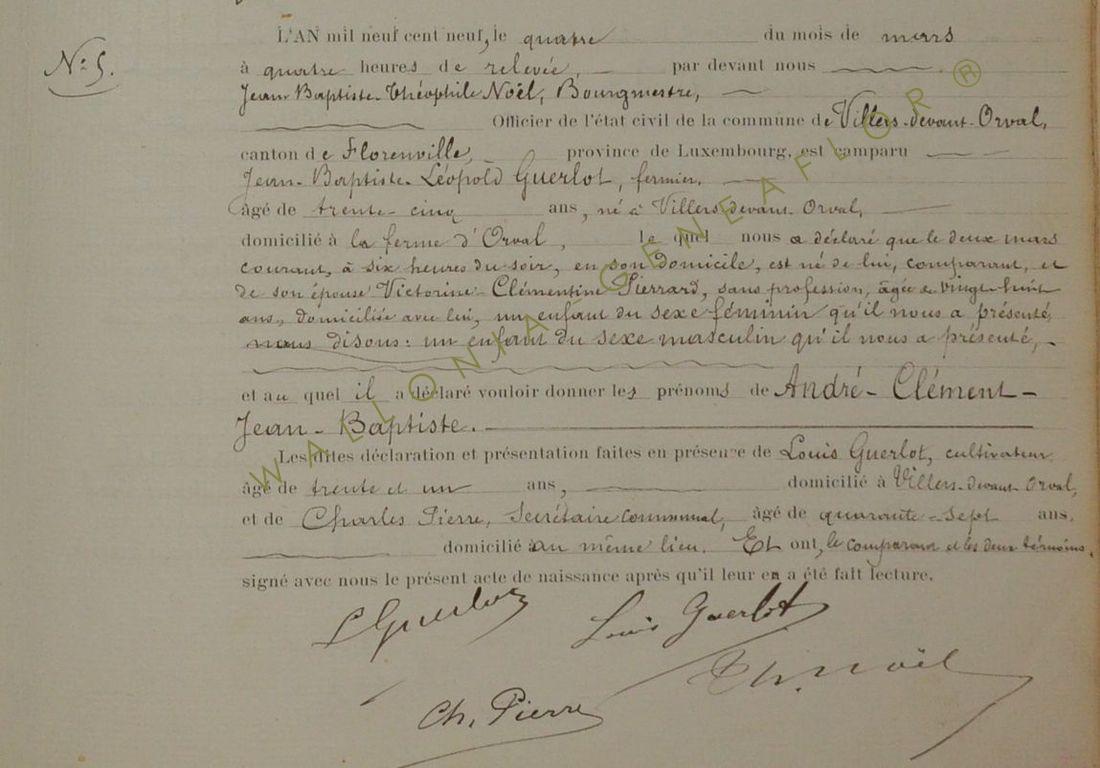 N° 5.
L'AN mil neuf cent neuf, le quatre du mois de mars
à quatre heures de relevée, par devant nous
Jean-Baptiste-Théophile Noël, Bourgmestre,
Officier de l'état civil de la commune de Villers-devant-Orval,
canton de Florenville, province de Luxembourg, est comparu
Jean-Baptiste-Léopold Guerlot, fermier,
âgé de trente-cinq ans, né à Villers-devant-Orval,
domicilié à la ferme d'Orval, le quel nous a déclaré que le deux mars
courant, à six heures du soir, en son domicile, est né de lui, comparant, et
de son épouse Victorine-Clémentine Pierrard, sans profession, âgée de vingt-huit
ans, domiciliée avec lui, un enfant du sexe féminin qu'il nous a présenté,
nous disons : un enfant du sexe masculin qu'il nous a présenté,
et au quel il a déclaré vouloir donner les prénoms de André-Clément-
Jean-Baptiste.
Les dites déclaration et présentation faites en présence de Louis Guerlot, cultivateur
âgé de trente et un ans, domicilié à Villers-devant-Orval,
et de Charles Pierre, Secrétaire communal, âgé de quarante-sept ans,
domicilié au même lieu. Et ont, le comparant et les deux témoins,
signé avec nous le présent acte de naissance après qu'il leur en a été fait lecture.
L Guerlot
Louis Guerlot
Th. Noël
Ch. Pierre
WALLONIA GENEAFLOR ®